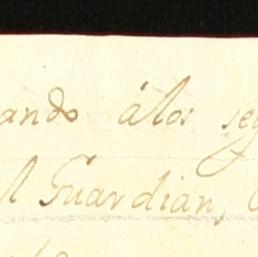 ando álos seg
l Guardian,